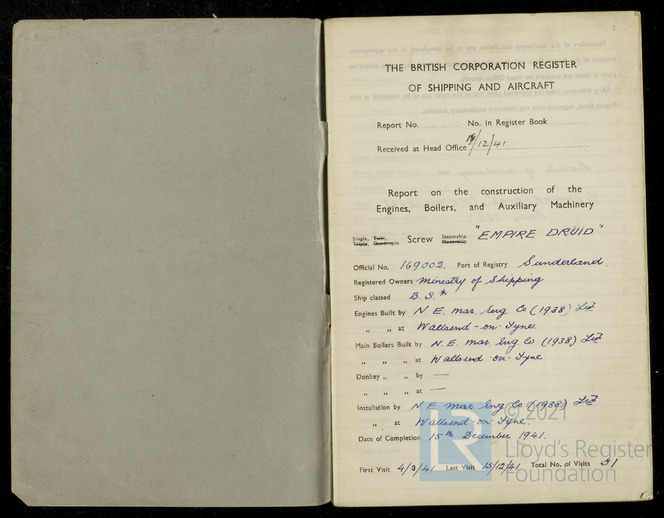 THE BRITISH CORPORATION REGISTER
OF SHIPPING AND AIRCRAFT
Report No. No. in Register Book
Received at Head Office /12/41
Report on the construction of the
Engines, Boilers, and Auxiliary Machinery
Single, Twin, Triple, Quadruple Screw Steamship Motorship "EMPIRE DRUID"
Official No. 169002. Port of Registry Sunderland.
Registered Owners Ministry of Shipping
Ship classed B.S.*
Engines Built by N.E. Mar. Eng Co (1938) Ltd
„ „ at Wallsend-on-Tyne.
Main Boilers Built by N.E. Mar Eng Co (1938) Ltd
„ „ „ at Wallsend-on-Tyne
Donkey „ „ by —
„ „ „ at —
Installation by N.E. Mar Eng Co (1938) Ltd
„ at Wallsend-on-Tyne.
Date of Completion 15th December 1941.
First Visit 4/3/41 Last Visit 15/12/41 Total No. of Visits 31
LR
© 2021
Lloyd's Register
Foundation